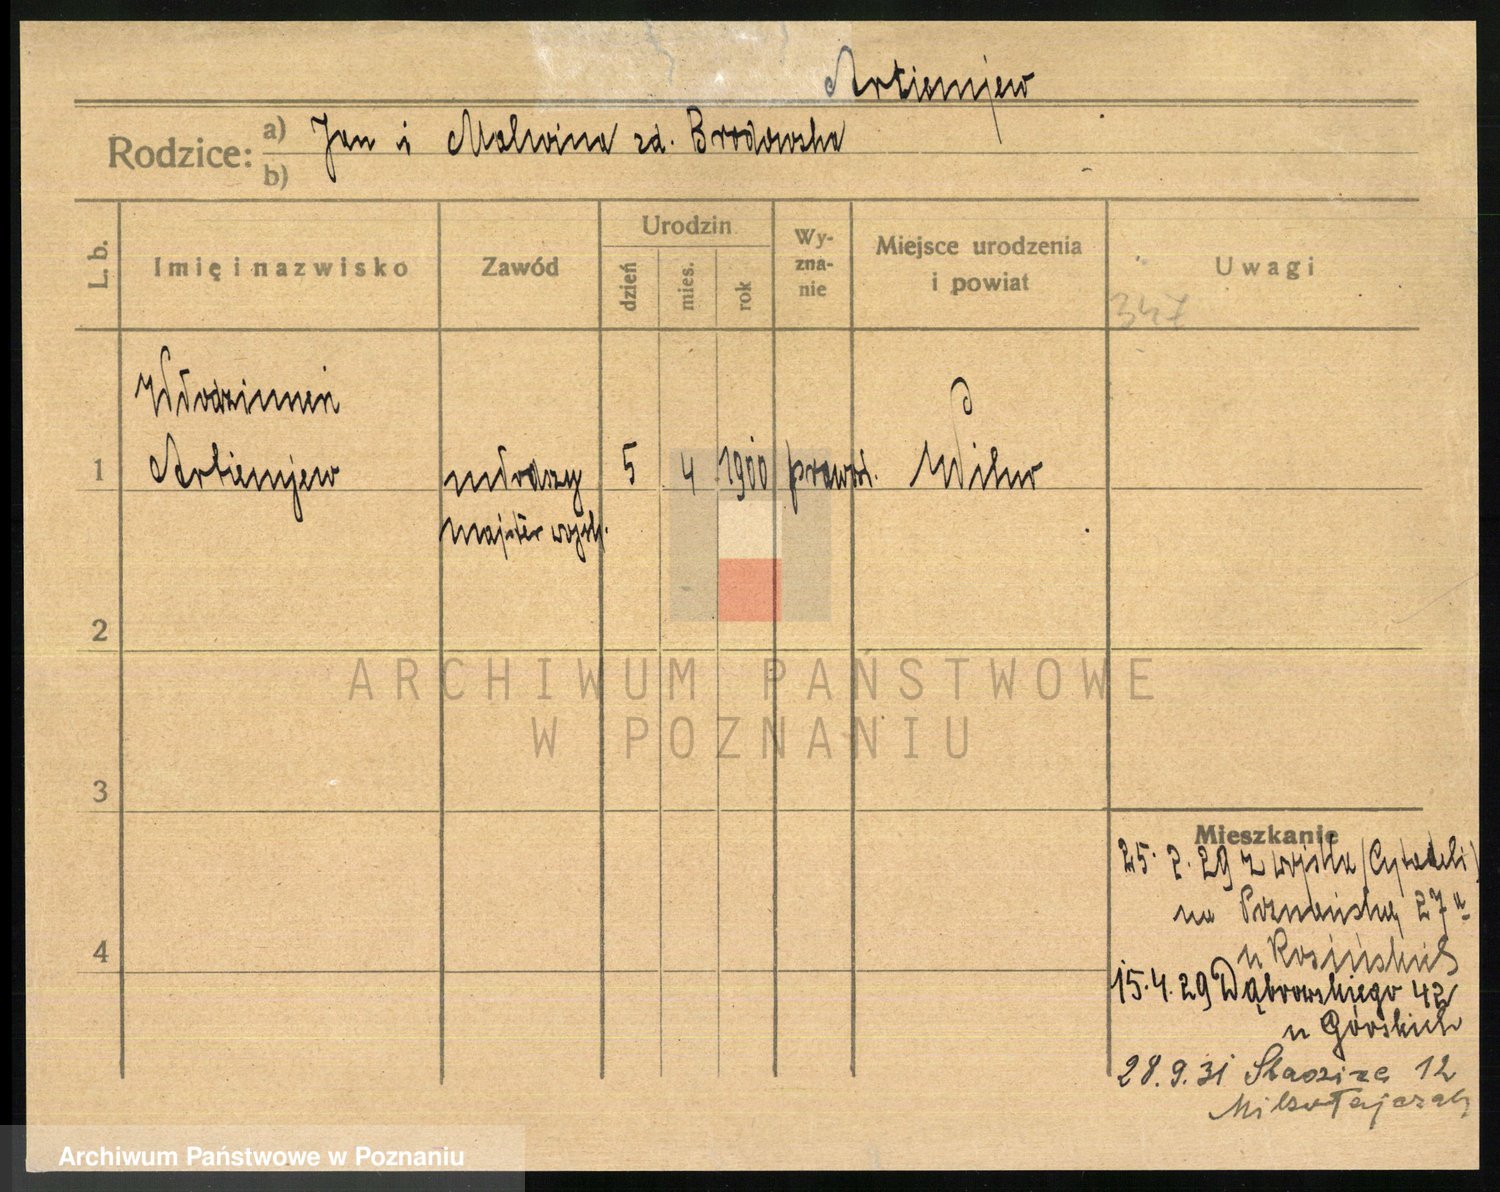 Artiemjew
Rodzice: a) Jan i Malwina zd. Brodowska
b)
L. b.
Imię i nazwisko
Zawód
Urodzin
dzień
mies.
rok
Wy-
zna-
nie
Miejsce urodzenia
i powiat
Uwagi
347
Włodzimierz
1 Artiemjew młodszy 5 4 1900 prawosł. Wilno
majster wojsk.
2
ARCHIWUM PAŃSTWOWE
W POZNANIU
3
Mieszkanie
25. 2. 29 z wojska (Cytadeli)
na Poznańską 27a
4
u Rosińskich
15.4.29 Dąbrowskiego 42
u Górskich
28.9.31 Staszica 12
Mikołajczak
Archiwum Państwowe w Poznaniu